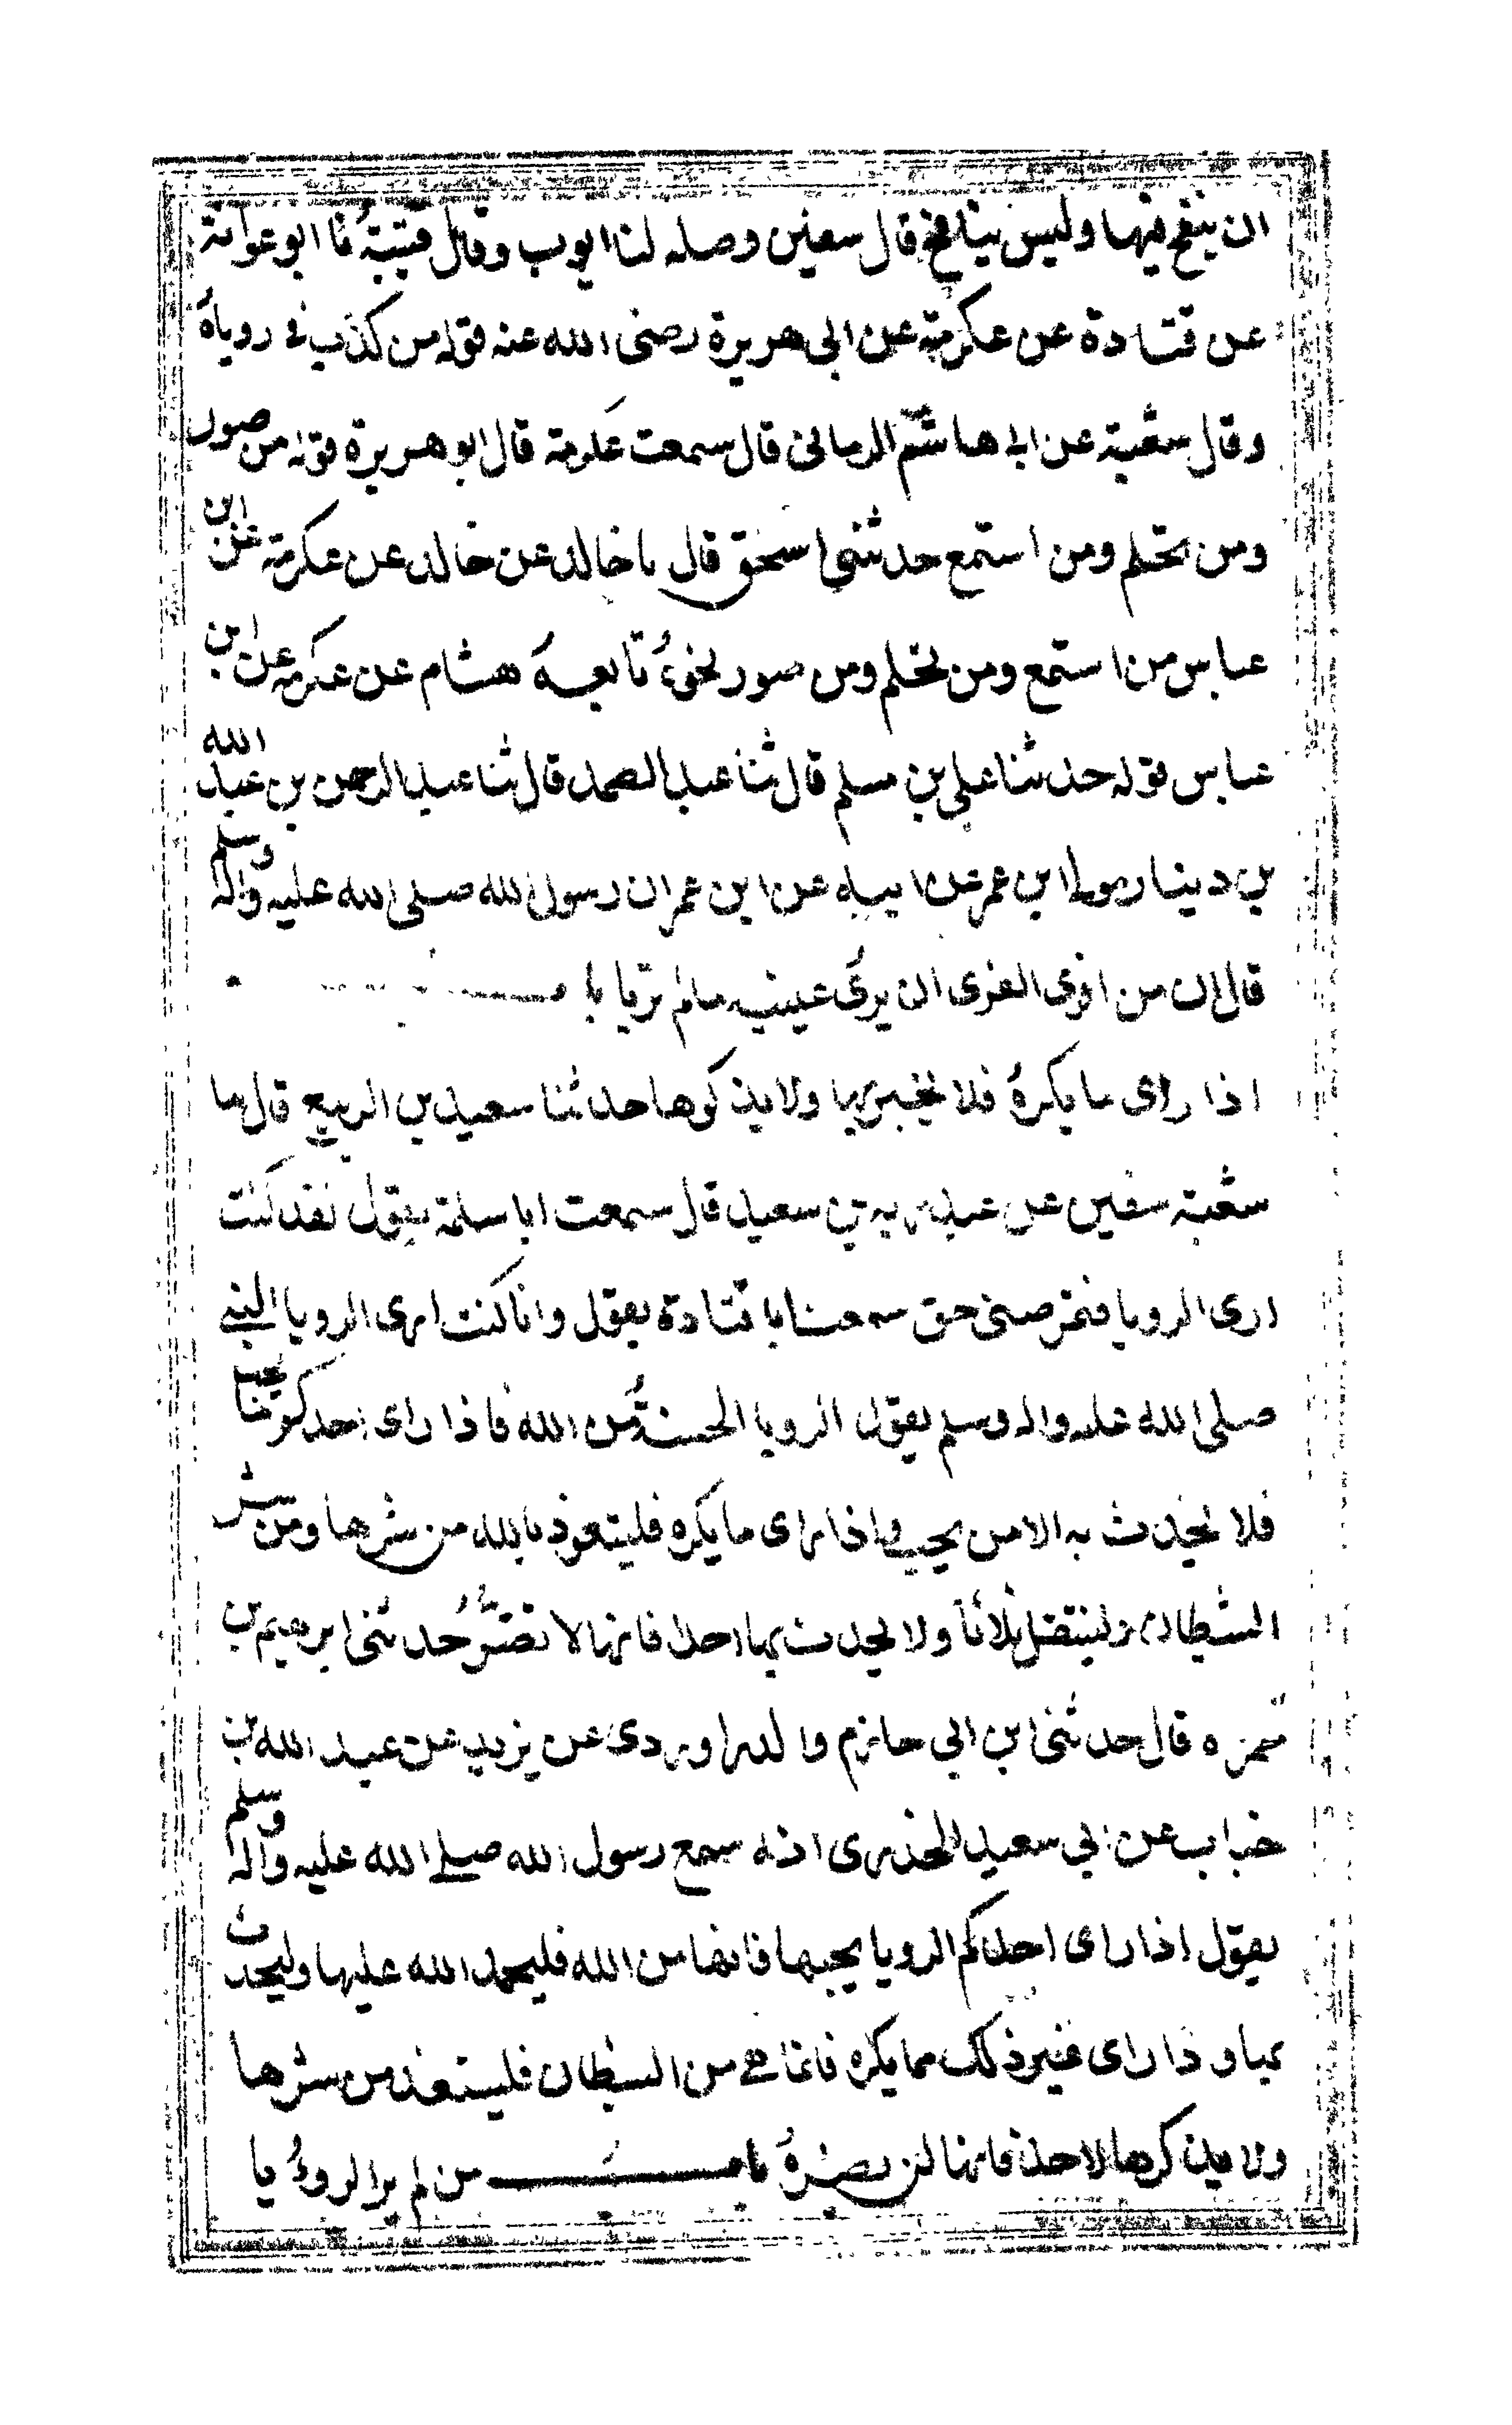 ان ينفخ فيها وليس بنافخ قال سفين وصله لنا ايوب وقال قتيبة نا ابو عوانة
عن قتادة عن عكرمة عن ابي هريرة رضى الله عنه قوله من كذب في روياه
وقال شعبة عن ابي هاشم الرماني قال سمعت عكرمة قال ابو هريرة قوله من صور
ومن تحلم ومن استمع حدثني اسحق قال نا خالد عن خالد عن عكرمة عن ابن
عباس من استمع ومن تحلم ومن صور نحوه تابعه هشام عن عكرمة عن ابن
عباس قوله حدثنا علي بن مسلم قال ثنا عبد الصمد قال ثنا عبد الرحمن بن عبد الله
بن دينار مولى ابن عمر عن ابيه عن ابن عمر ان رسول الله صلى الله عليه واله وسلم
قال ان من افرى الفرى ان يرى عينيه مالم تريا باب
اذا راى ما يكره فلا يخبر بها ولا يذكرها حدثنا سعيد بن الربيع قال نا
شعبة سفين عن عبد ربه بن سعيد قال سمعت ابا سلمة يقول لقد كنت
ارى الرويا فتمرضني حتى سمعت ابا قتادة يقول وانا كنت ارى الرويا النبي
صلى الله عليه واله وسلم يقول الرويا الحسنة من الله فاذا راى احدكم ما يحب
فلا يحدث به الا من يحب واذا راى ما يكره فليتعوذ بالله من شرها ومن شر
الشيطان وليتفل ثلاثا ولا يحدث بها احدا فانها لا تضره حدثنى ابرهيم بن
حمزه قال حدثنى ابن ابي حازم والدراوردى عن يزيد عن عبد الله بن
خباب عن ابي سعيد الخدرى انه سمع رسول الله صلى الله عليه واله وسلم
يقول اذا راى احدكم الرويا يحبها فانها من الله فليحمد الله عليها وليحدث
بها واذا راى غير ذلك مما يكره فانما هي من الشيطان فليستعذ من شرها
ولا يذكرها لاحد فانها لن تضره باب من لم ير الرويا